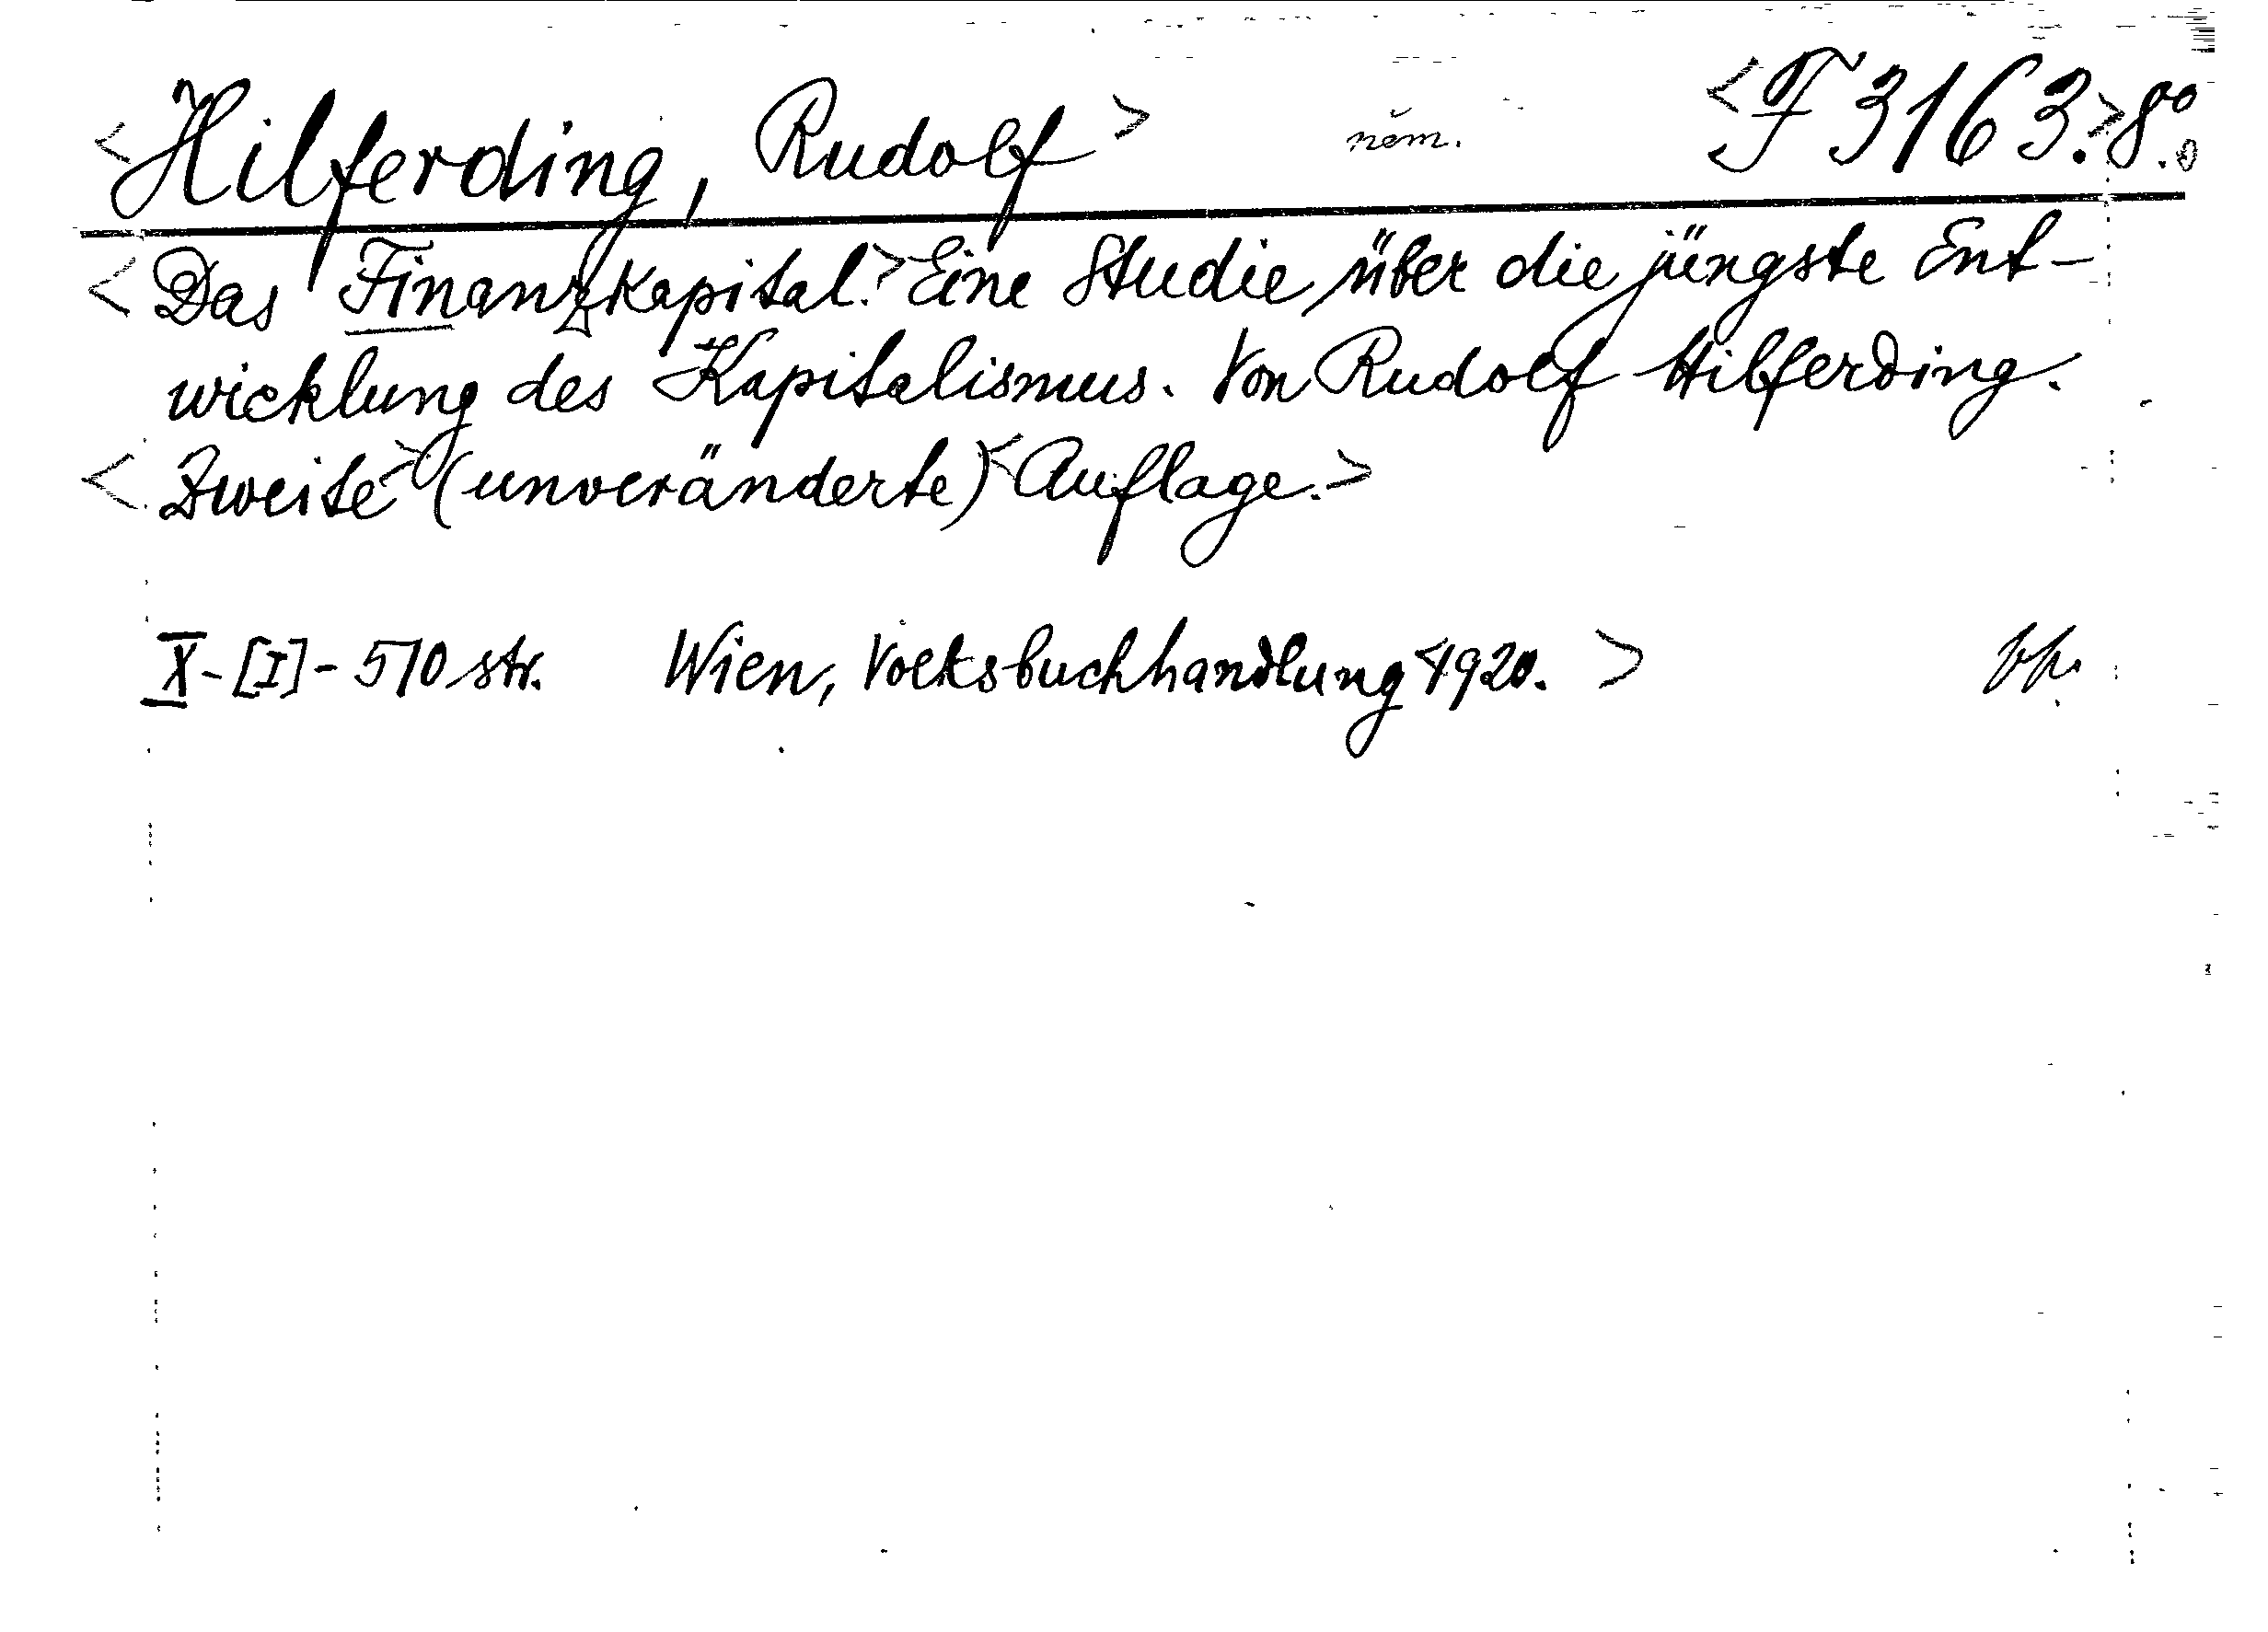 <Hilferding, Rudolf> něm. <F 3163.>8°.
<Das Finanzkapital.> Eine Studie über die jüngste Ent-
wicklung des Kapitalismus. Von Rudolf Hilferding.
<Zweite> (unveränderte) <Auflage.>
X-[I]-510 str. Wien, Volksbuchhandlung <1920. >